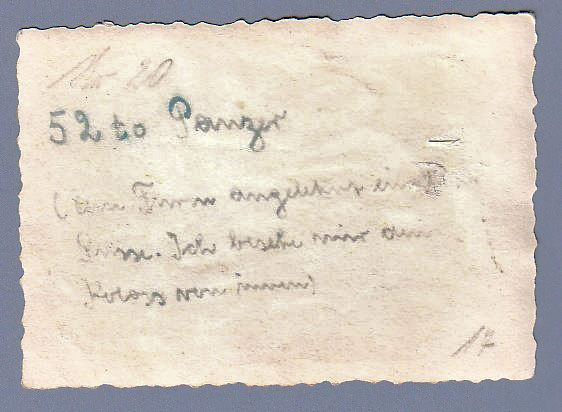 No 20
52 to Panzer
(Am Turm angelehnt ein
Russe. Ich besehe mir den
Koloss von innen)
17